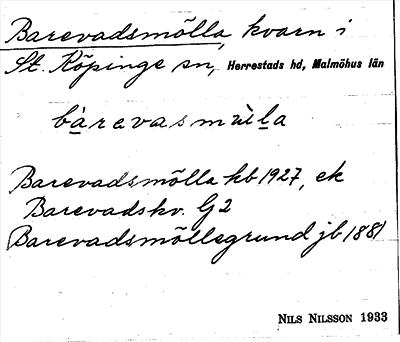 Barevadsmölla, kvarn i
St. Köpinge sn, Herrestads hd, Malmöhus län
bàrevasmùla
Barevadsmölla kb 1927, ek
Barevadskv. G2
Barevadsmöllegrund jb 1881
NILS NILSSON 1933